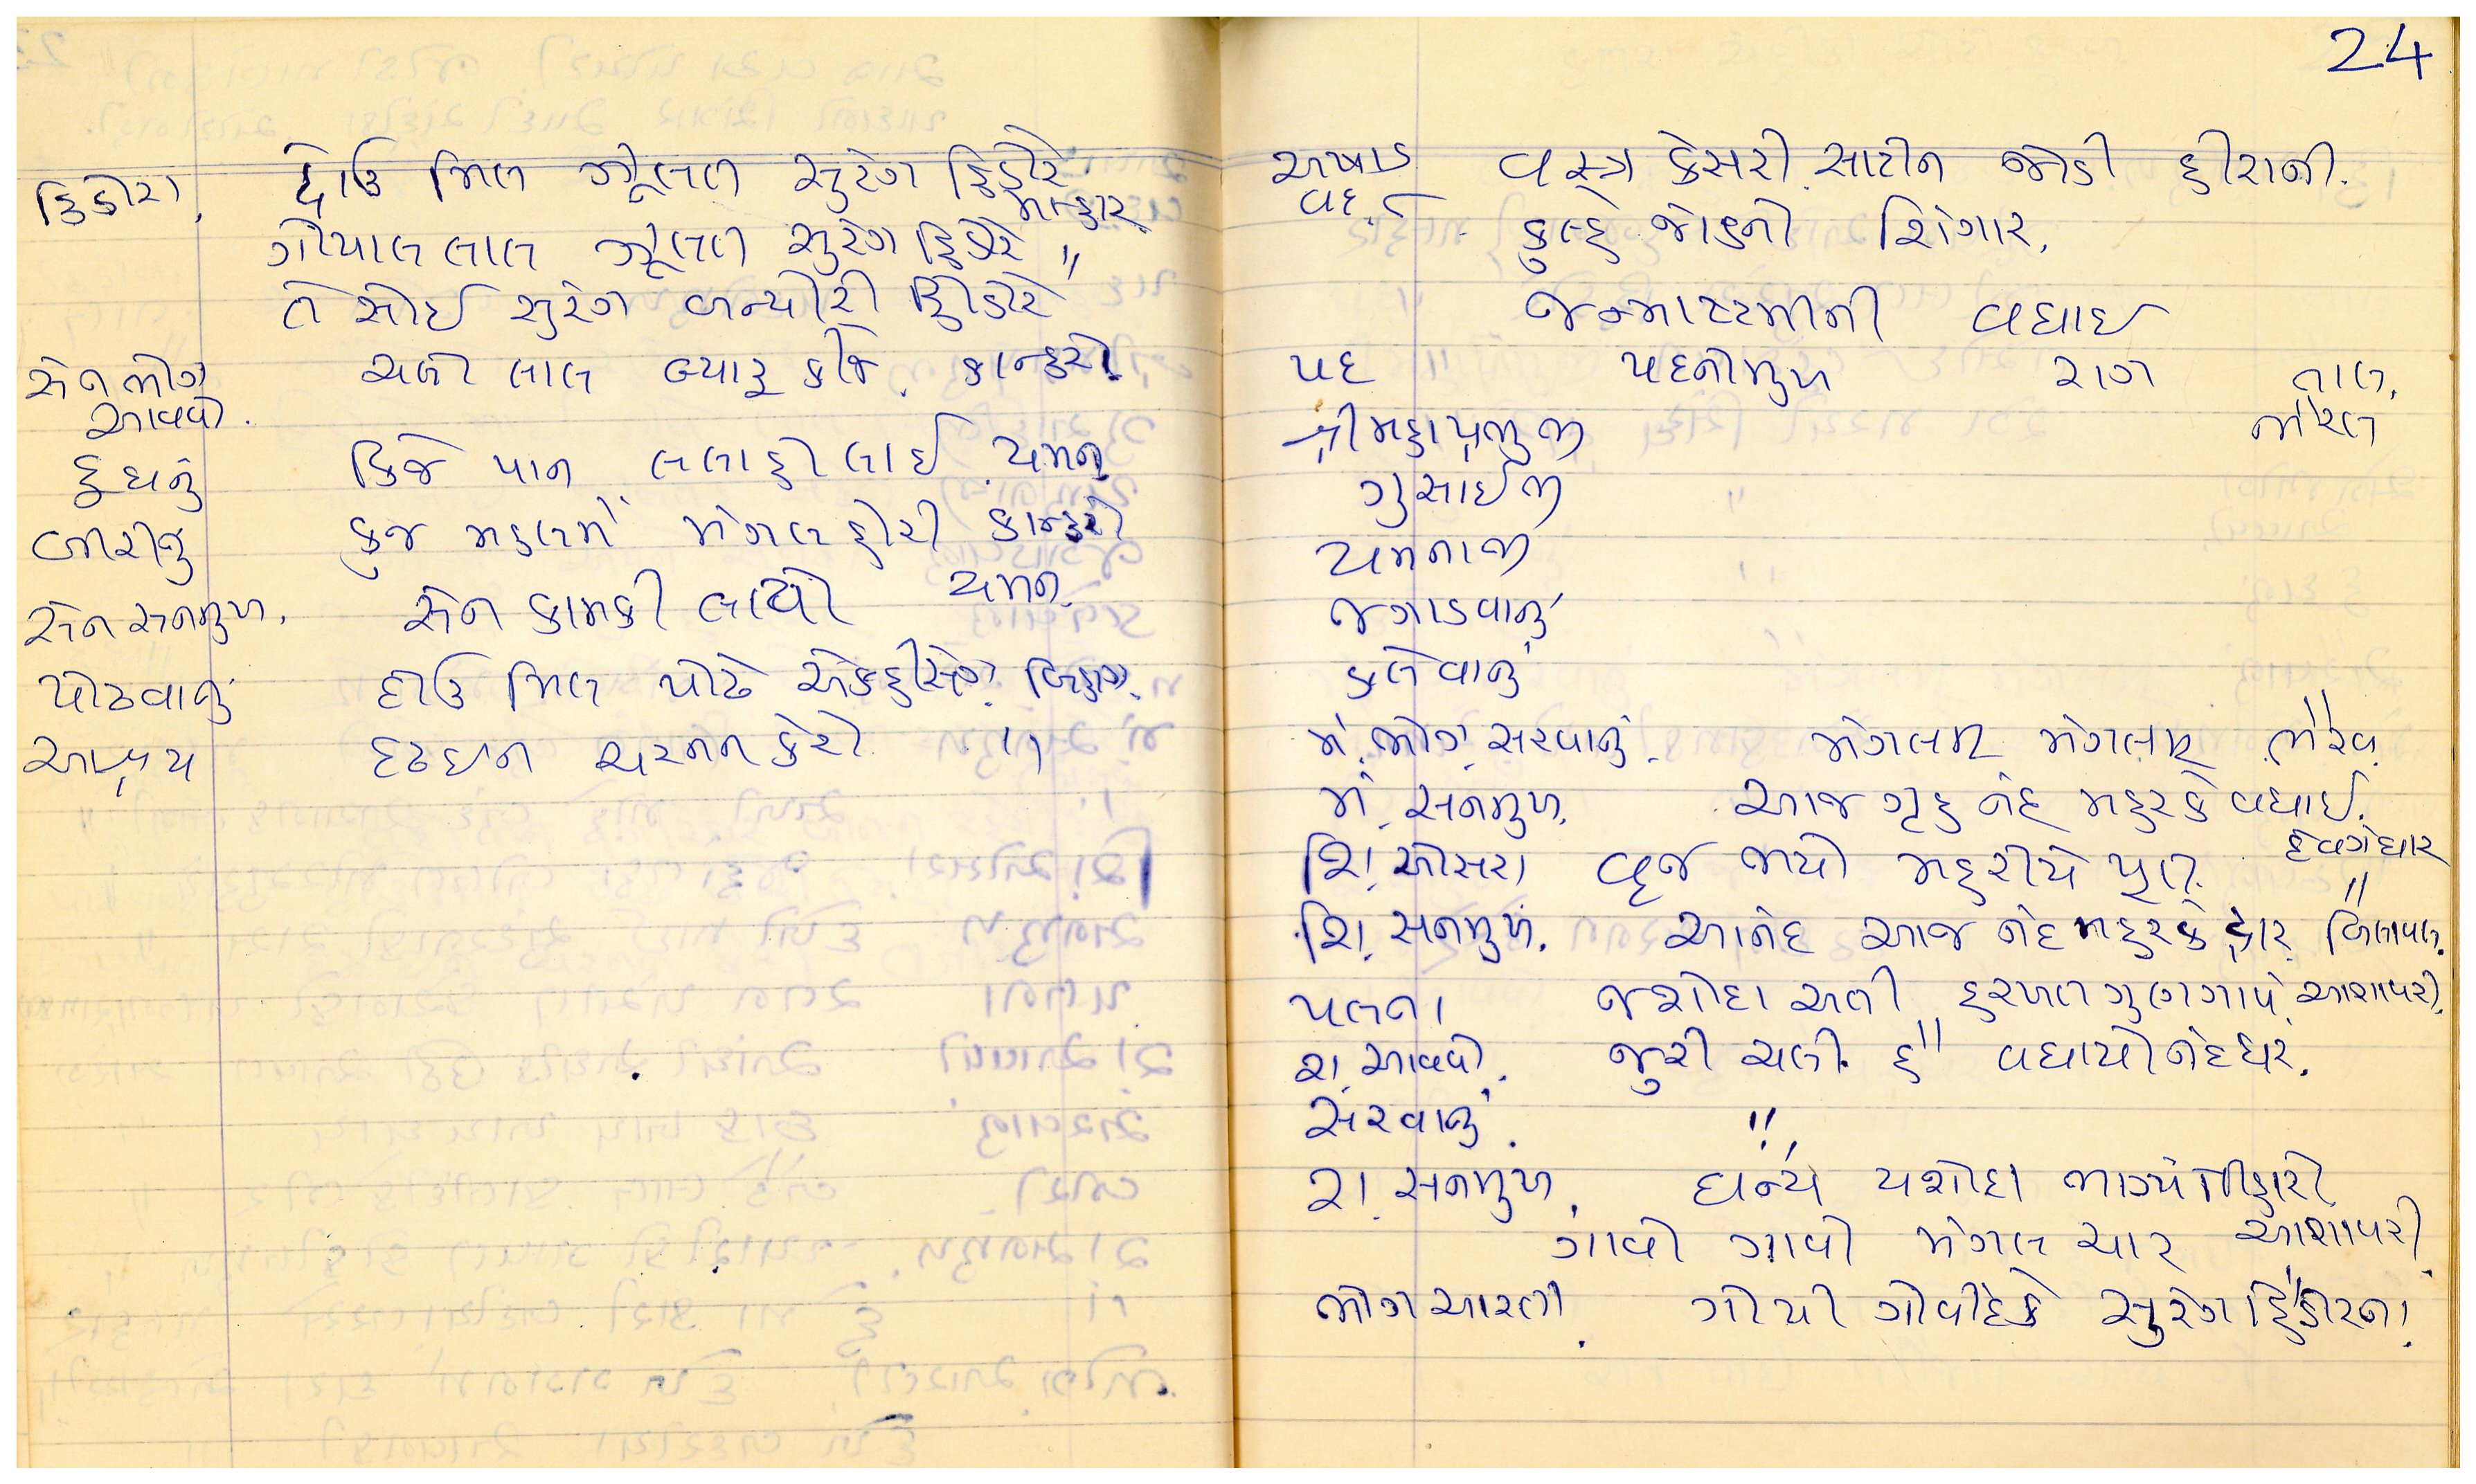 હિંડોરા. દોઉ મિલ ઝૂલત સુરંગ હિંડોરે.
મલ્હાર.
ગોપાલ લાલ ઝૂલત સુરંગ હિંડોરે "
તે સોઈ સુરંગ બન્યોરી હિંડોરે
સેન ભોગ ચલો લાલ બ્યારૂ કીજે. કાન્હરો.
આવવો.
દૂધનું કિજે પાન લલા હો લાઈ યમન
બીરીનું કુંજ મહલમેં મંગલ હોરી કાન્હરો
સેન સનમુખ. સેન કામકી લાયો યમન
પોઢવાનું દોઉ મિલ પોઢે એકહીસંગ. બિહાગ.
આશ્રય દ્રઢઇન ચરનન કેરો "
24
અષાડ વસ્ત્ર કેસરી સાટીન જોડી હીરાની.
વદ ૮ કુલ્હે જોડનો શિંગાર.
જન્માષ્ટમીની વધાઈ
પદ પદનોમુખ રાગ તાલ.
શ્રીમહાપ્રભુજી ભૈરવ
ગુસાઈજી
યમનાજી
જગાડવાનું
કલેવાનું
મં. ભોગ. સરવાનું. મંગલમ્ મંગલમ્ ભૈરવ.
મં. સનમુખ. આજ ગૃહ નંદ મહરકે વધાઈ.
દેવગંધાર
શિં. ઓસરા વૃજ ભયો મહરીયે પૂત. "
શિં. સનમુખ. આનંદ આજ નંદ મહરકે દ્વાર બિલાવલ.
પલના જશોદા અતી હરખત ગુણગાયે. આશાવરી.
રા. આવવો. જુરી ચલી હે વધાયોનંદઘર. "
સરવાનું. "
રા. સનમુખ. ધન્ય યશોદા ભાગ્ય તીહારો
ગાવો ગાવો મંગલ ચાર આશાવરી.
ભોગ આરતી. ગોપી ગોવીંદકે સુરંગ હિંડોરના.